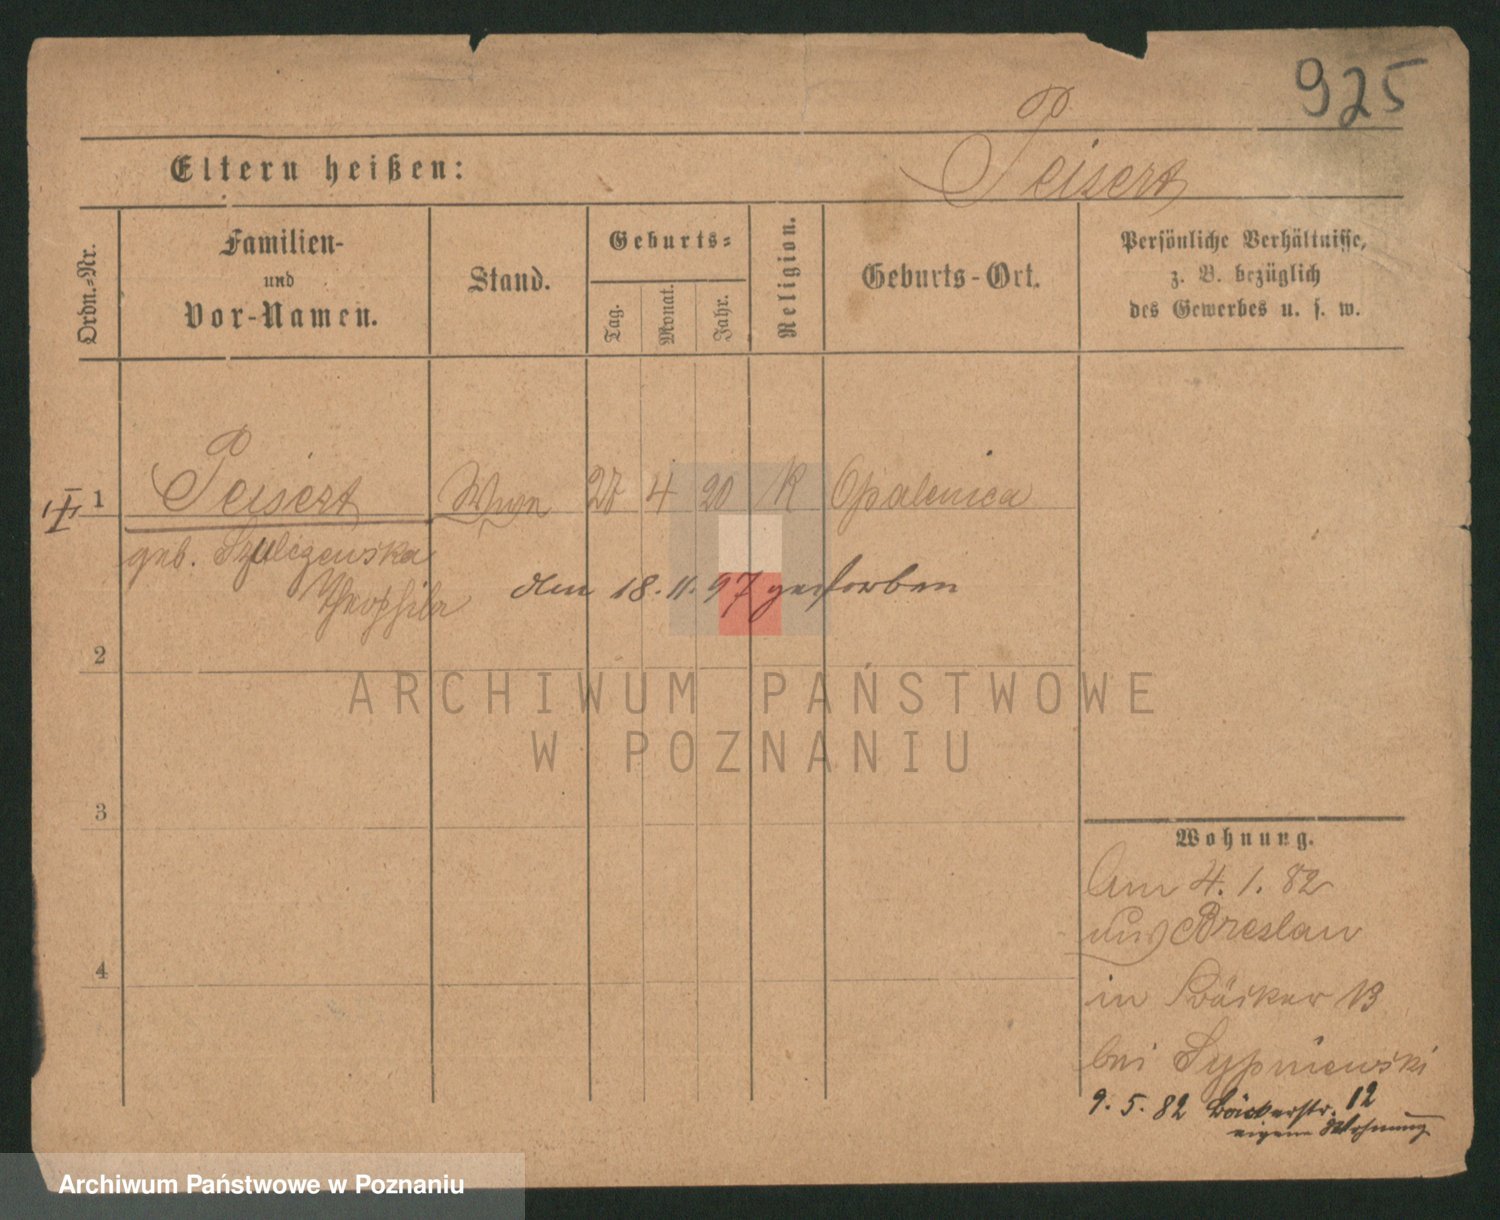 925
Eltern heißen:
Peisert
Ordn.-Nr.
Familien-
und
Vor-Namen.
Stand.
Geburts-
Tag.
Monat.
Jahr.
Religion.
Geburts-Ort.
Persönliche Verhältnisse,
z. B. bezüglich
des Gewerbes u. s. w.
1 Peisert Wwe 27 4 20 K Opalenica
geb. Szulczewska
Theophila
am 18. 11. 97 gestorben
2
ARCHIWUM PAŃSTWOWE
W POZNANIU
3
4
Wohnung.
Am 4. 1. 82
aus Breslau
in Bäcker 13
bei Sypniewski
9. 5. 82 Bäckerstr. 12
eigene Wohnung
Archiwum Państwowe w Poznaniu